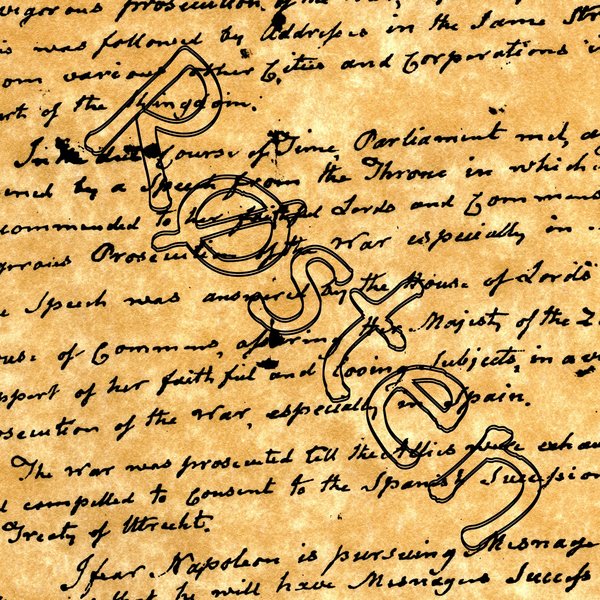 vigorous prosecution of the War, in the
is was followed by Addresses in the Same
from various other Cities and Corporations
part of the Kingdom.
In the Course of Time, Parliament met,
by a Speech from the Throne in which
commended to her faithful Lords and Commons
Prosecution of the War especially in
Speech was answered by the House of Lords
of Commons, her Majesty of the
support of her faithful and loving Subjects, in a
Prosecution of the War, especially in Spain.
The War was prosecuted till the Allies were
compelled to Consent to the Spanish Succession
Treaty of Utrecht.
I fear Napoleon is pursuing
that he will have Success
Posten